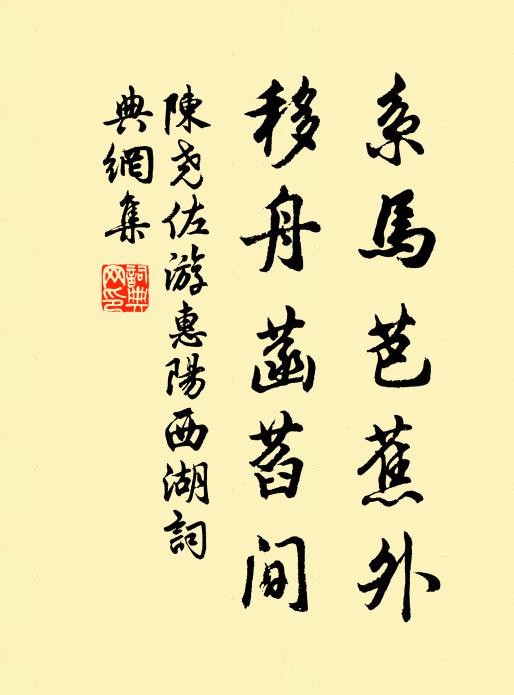 系馬芭蕉外
移舟菡萏間
陳堯佐游惠陽西湖詞
典網集
詞典网印